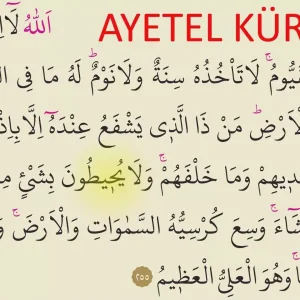 AYETEL KÜR
اَللّٰهُ لَٓا
قَيُّومُۚ لَا تَأْخُذُهُ سِنَةٌ وَلَا نَوْمٌۜ لَهُ مَا فِى
الْاَرْضِۜ مَنْ ذَا الَّذٖى يَشْفَعُ عِنْدَهُٓ اِلَّا بِاِذْ
يَدٖيهِمْ وَمَا خَلْفَهُمْۚ وَلَا يُحٖيطُونَ بِشَىْءٍ مِ
شَٓاءَۚ وَسِعَ كُرْسِيُّهُ السَّمٰوَاتِ وَالْاَرْضَۚ
اۚ وَهُوَ الْعَلِىُّ الْعَظٖيمُ ٢٥٥